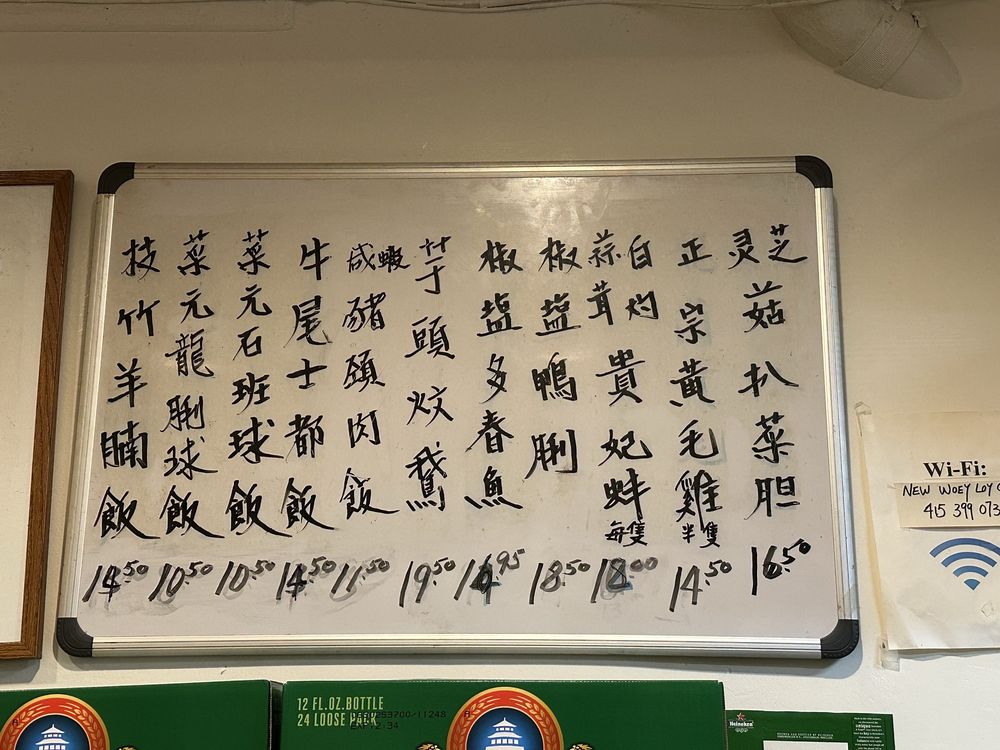 灵芝菇扒菜胆 16.50
正宗黄毛雞 半隻 14.50
白灼
蒜茸
貴妃蚌 每隻 18.00
椒塩鴨脷 18.50
椒塩多春魚 16.95
芋頭炆鵞 19.50
咸蝦豬頸肉飯 11.50
牛尾士都飯 14.50
菜元石班球飯 10.50
菜元龍脷球飯 10.50
枝竹羊腩飯 14.50
Wi-Fi:
NEW WOEY LOY
415 399 073
12 FL.OZ.BOTTLE
24 LOOSE PACK
Heineken